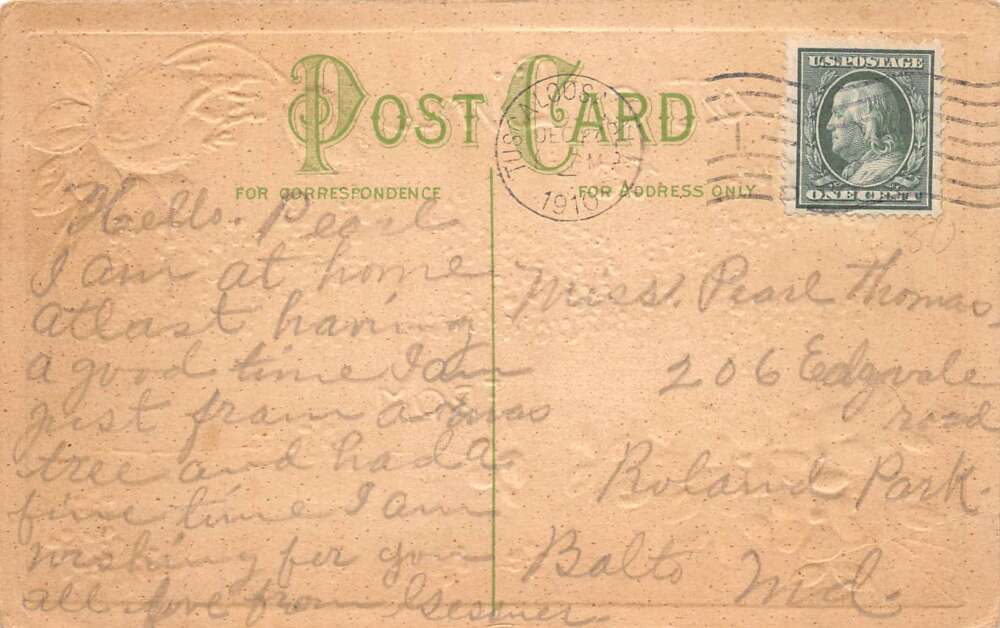 POST CARD
FOR CORRESPONDENCE
FOR ADDRESS ONLY
U.S. POSTAGE
ONE CENT
TUSCALOOS
DEC
1910
Hello. Pearl
I am at home
atlast having
a good time I am
just from a xmas
tree and had a
fine time I am
wishing for you
all love from
Miss. Pearl Thomas.
206 Edgvale
road
Roland Park.
Balto Md.